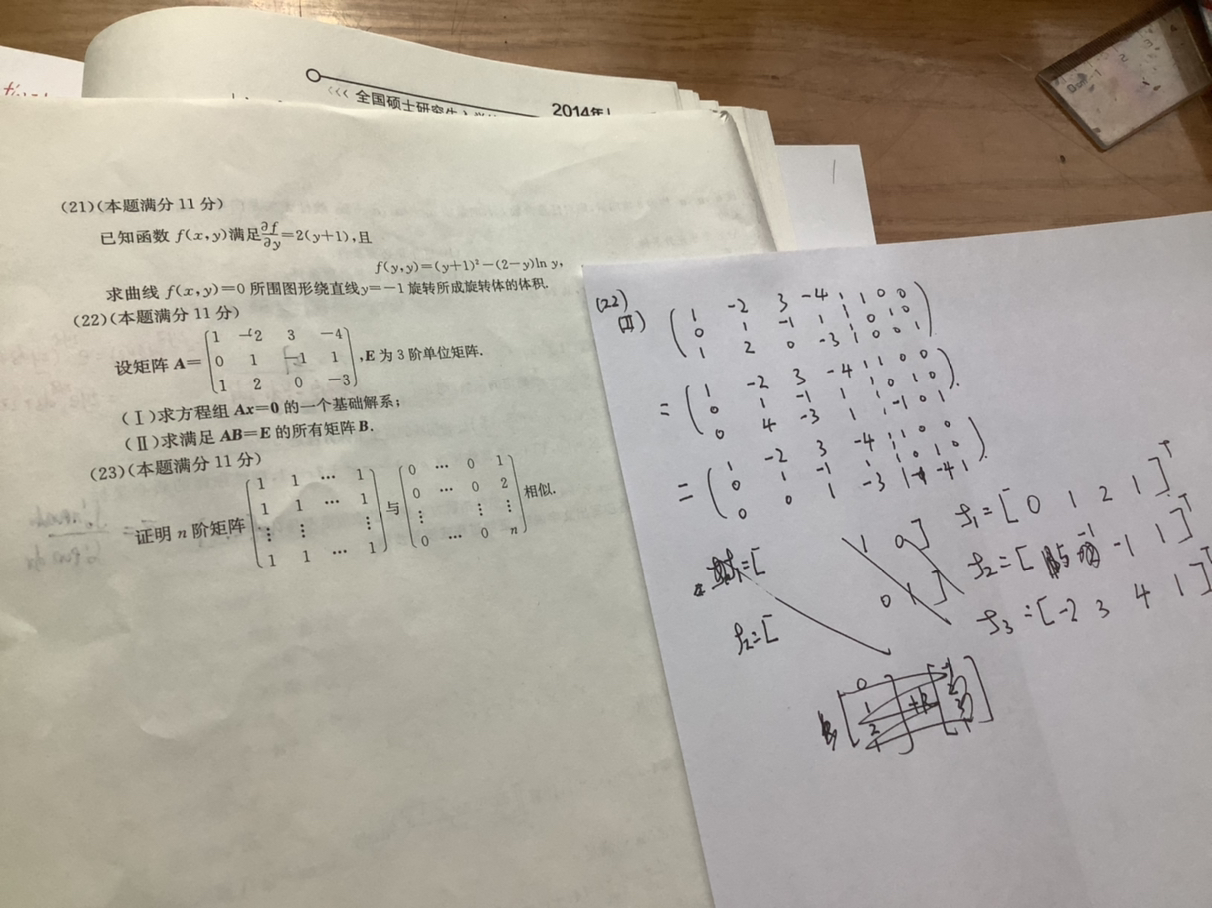 <<< 全国硕士研究生入学
2014年
(21)(本题满分 11 分)
已知函数 f(x,y)满足∂f/∂y=2(y+1),且
f(y,y)=(y+1)²-(2-y)ln y,
求曲线 f(x,y)=0 所围图形绕直线y=-1 旋转所成旋转体的体积.
(22)(本题满分 11 分)
1 -2 3 -4
设矩阵 A= 0 1 -1 1 ,E 为 3 阶单位矩阵.
1 2 0 -3
(Ⅰ)求方程组 Ax=0 的一个基础解系;
(Ⅱ)求满足 AB=E 的所有矩阵 B.
(23)(本题满分 11 分)
1 1 … 1 0 … 0 1
1 1 … 1 0 … 0 2
证明 n 阶矩阵 ⋮ ⋮ ⋮ 与 ⋮ ⋮ ⋮ 相似.
1 1 … 1 0 … 0 n
1
(22)
(Ⅱ)
1 -2 3 -4 1 0 0
0 1 -1 1 0 1 0
1 2 0 -3 0 0 1
= 1 -2 3 -4 1 0 0
0 1 -1 1 0 1 0
0 4 -3 1 -1 0 1
= 1 -2 3 -4 1 0 0
0 1 -1 1 0 1 0
0 0 1 -3 -1 -4 1
=[ 1 0]
ξ₂=[ 0 1]
ξ₁=[0 1 2 1]ᵀ
ξ₂=[ -1 -1 1]ᵀ
ξ₃=[-2 3 4 1]ᵀ
0
1
2